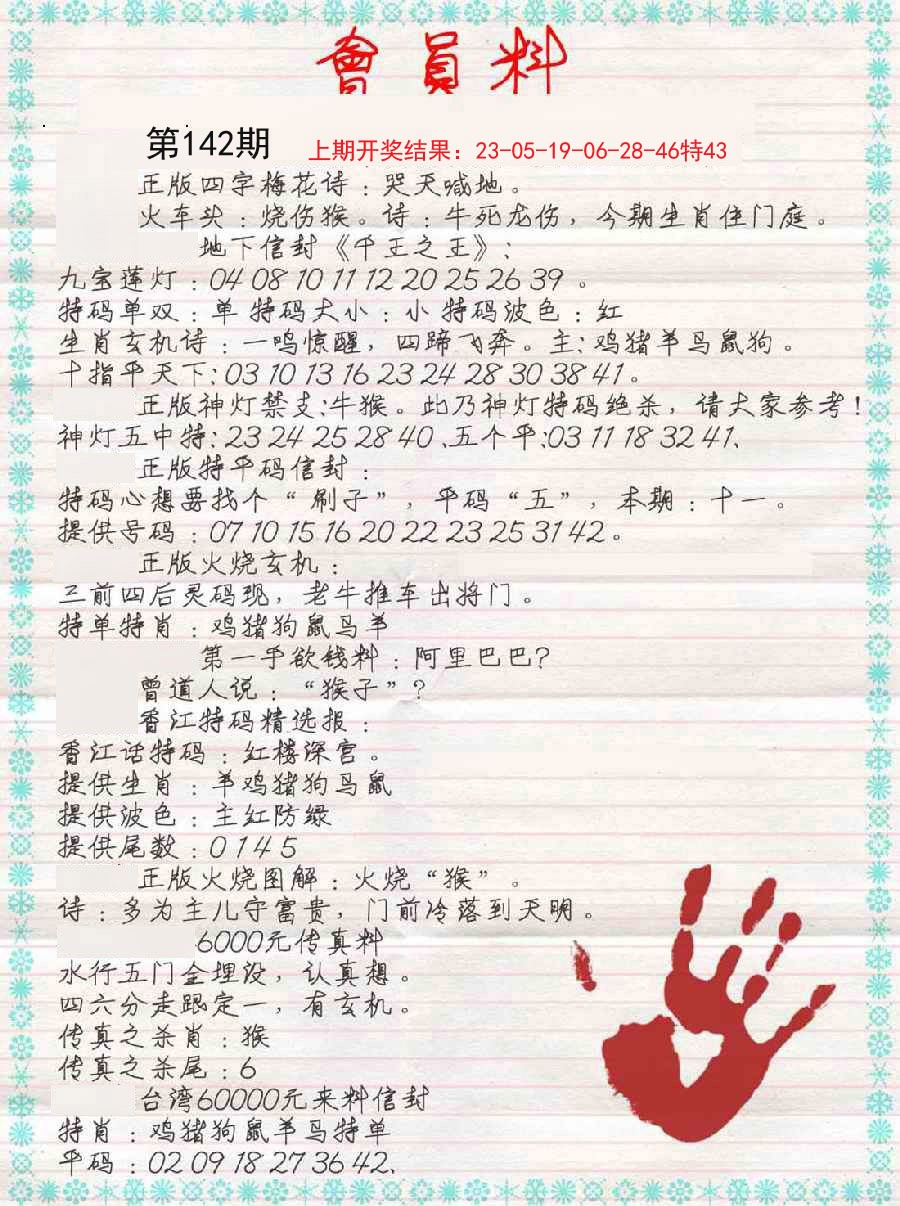 會員料
第142期 上期开奖结果：23-05-19-06-28-46特43
正版四字梅花诗：哭天喊地。
火车头：烧伤猴。诗：牛死龙伤，今期生肖住门庭。
地下信封《千王之王》：
九宝莲灯：04 08 10 11 12 20 25 26 39 。
特码单双：单 特码大小：小 特码波色：红
生肖玄机诗：一鸣惊醒，四蹄飞奔。主：鸡猪羊马鼠狗。
十指平天下：03 10 13 16 23 24 28 30 38 41。
正版神灯禁支：牛猴。此乃神灯特码绝杀，请大家参考！
神灯五中特：23 24 25 28 40、五个平：03 11 18 32 41、
正版特平码信封：
特码心想要找个“刷子”，平码“五”，本期：十一。
提供号码：07 10 15 16 20 22 23 25 31 42。
正版火烧玄机：
三前四后灵码现，老牛推车出将门。
特单特肖：鸡猪狗鼠马羊
第一手欲钱料：阿里巴巴？
曾道人说：“猴子”？
香江特码精选报：
香江话特码：红楼深宫。
提供生肖：羊鸡猪狗马鼠
提供波色：主红防绿
提供尾数：0 1 4 5
正版火烧图解：火烧“猴”。
诗：多为主儿守富贵，门前冷落到天明。
6000元传真料
水行五门金埋没，认真想。
四六分走跟定一，有玄机。
传真之杀肖：猴
传真之杀尾：6
台湾60000元来料信封
特肖：鸡猪狗鼠羊马特单
平码：02 09 18 27 36 42、